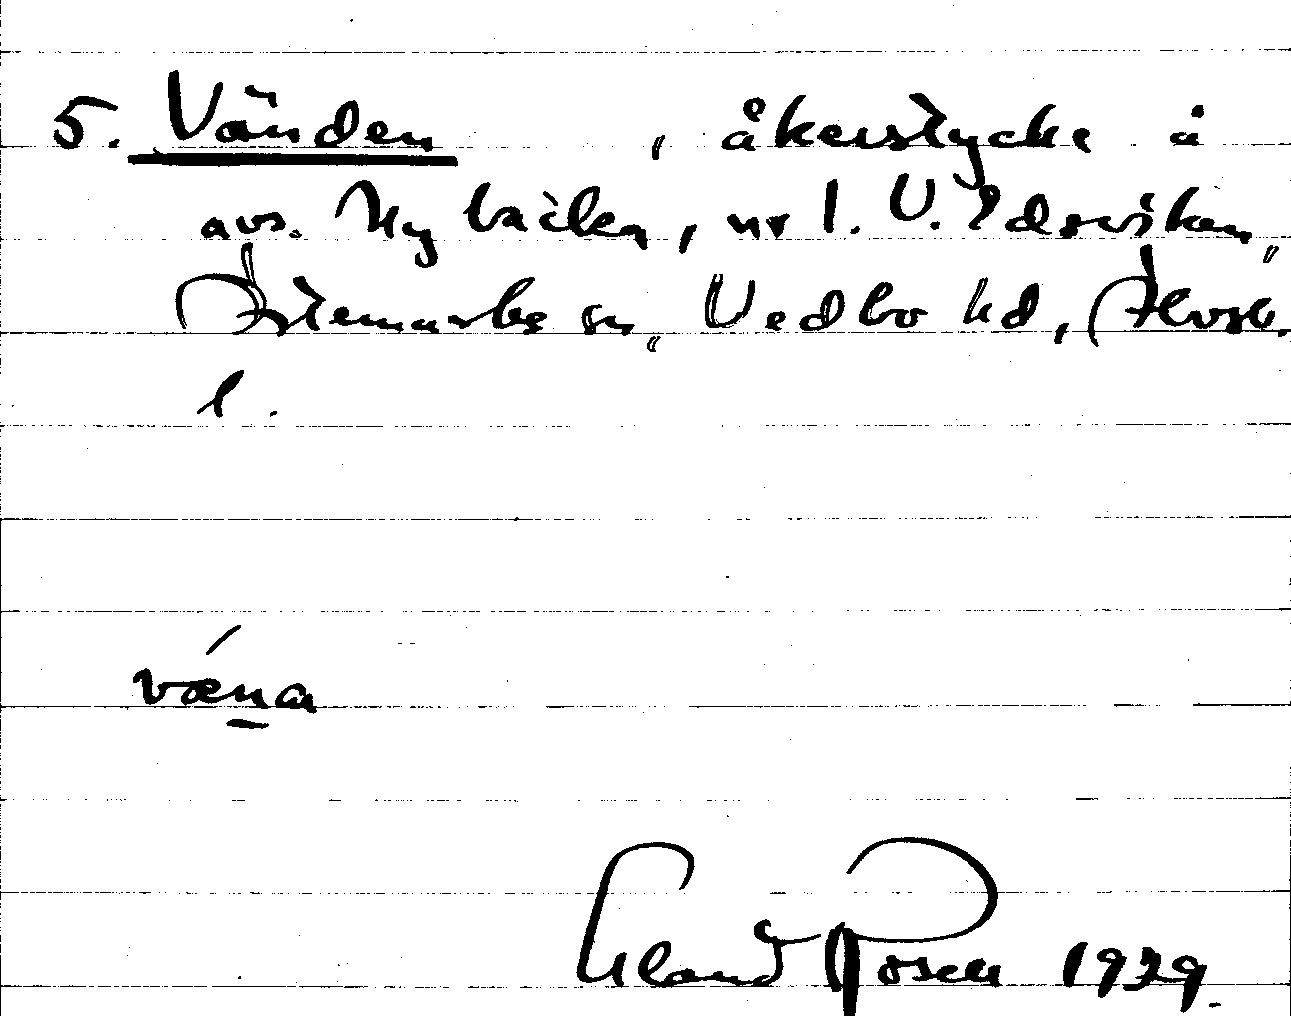 5. Vänden , åkerstycke å
avs. Nybäcken, nr 1. V. Edsviken,
Ärtemarks sn, Vedbo hd, Älvsb.
l.
væ´na
Eland Rosell 1929.